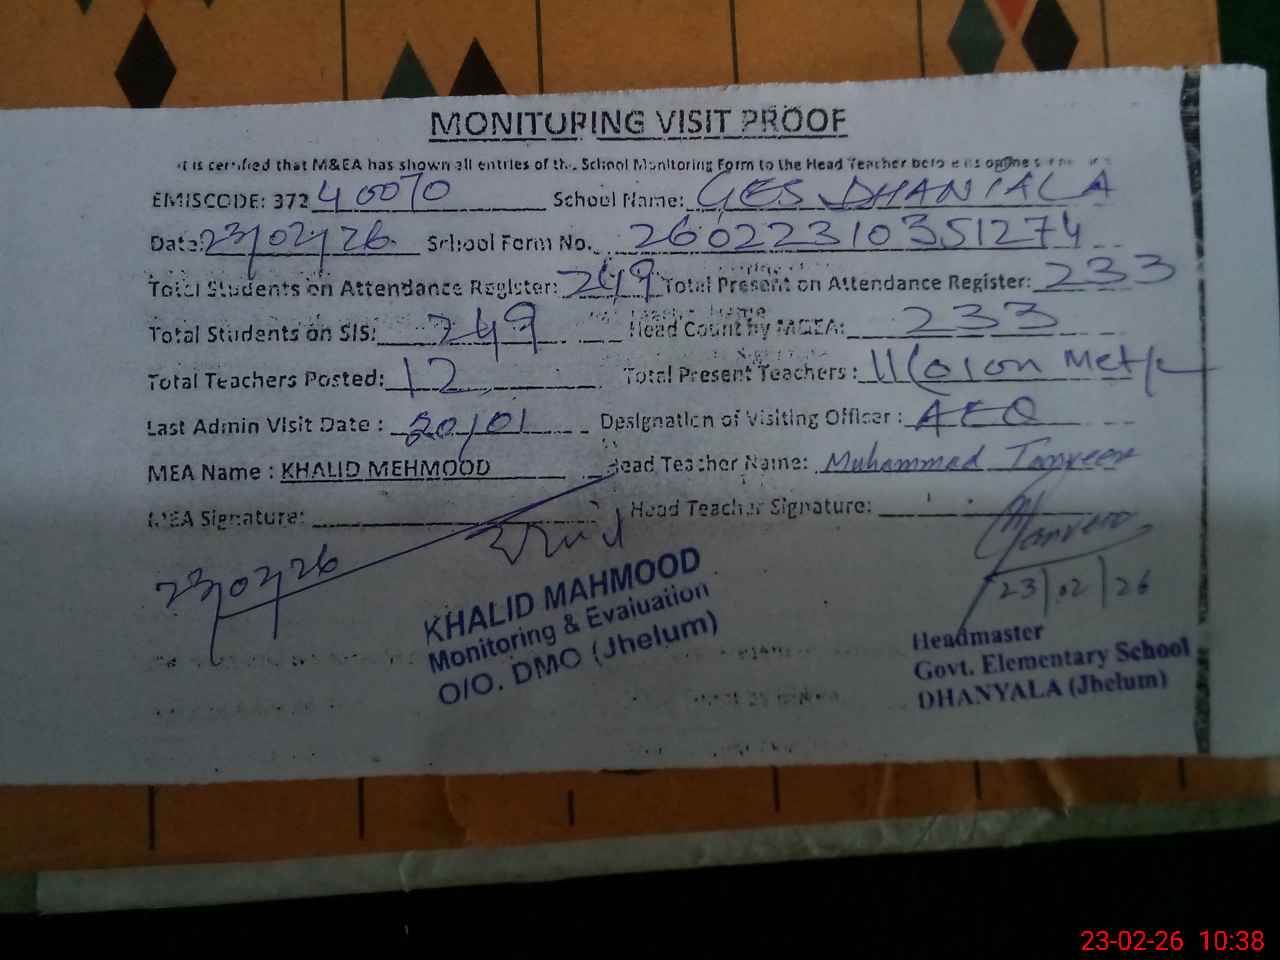 MONITORING VISIT PROOF
It is certified that M&EA has shown all entries of the School Monitoring Form to the Head Teacher before
EMISCODE: 37240070 School Name: GES DHANIALA
Date: 23/02/26 School Form No. 26022310351274
Total Students on Attendance Register: 249 Total Present on Attendance Register: 233
Total Students on SIS: 249 Head Count by M&EA: 233
Total Teachers Posted: 12 Total Present Teachers: 11 (01 on
Last Admin Visit Date: 20/01 Designation of Visiting Officer: AEO
MEA Name: KHALID MEHMOOD Head Teacher Name: Muhammad Tanveer
MEA Signature: Head Teacher Signature:
Tanveer
23/02/26 23/02/26
KHALID MAHMOOD
Monitoring & Evaluation
O/O. DMO (Jhelum)
Headmaster
Govt. Elementary School
DHANYALA (Jhelum)
23-02-26 10:38